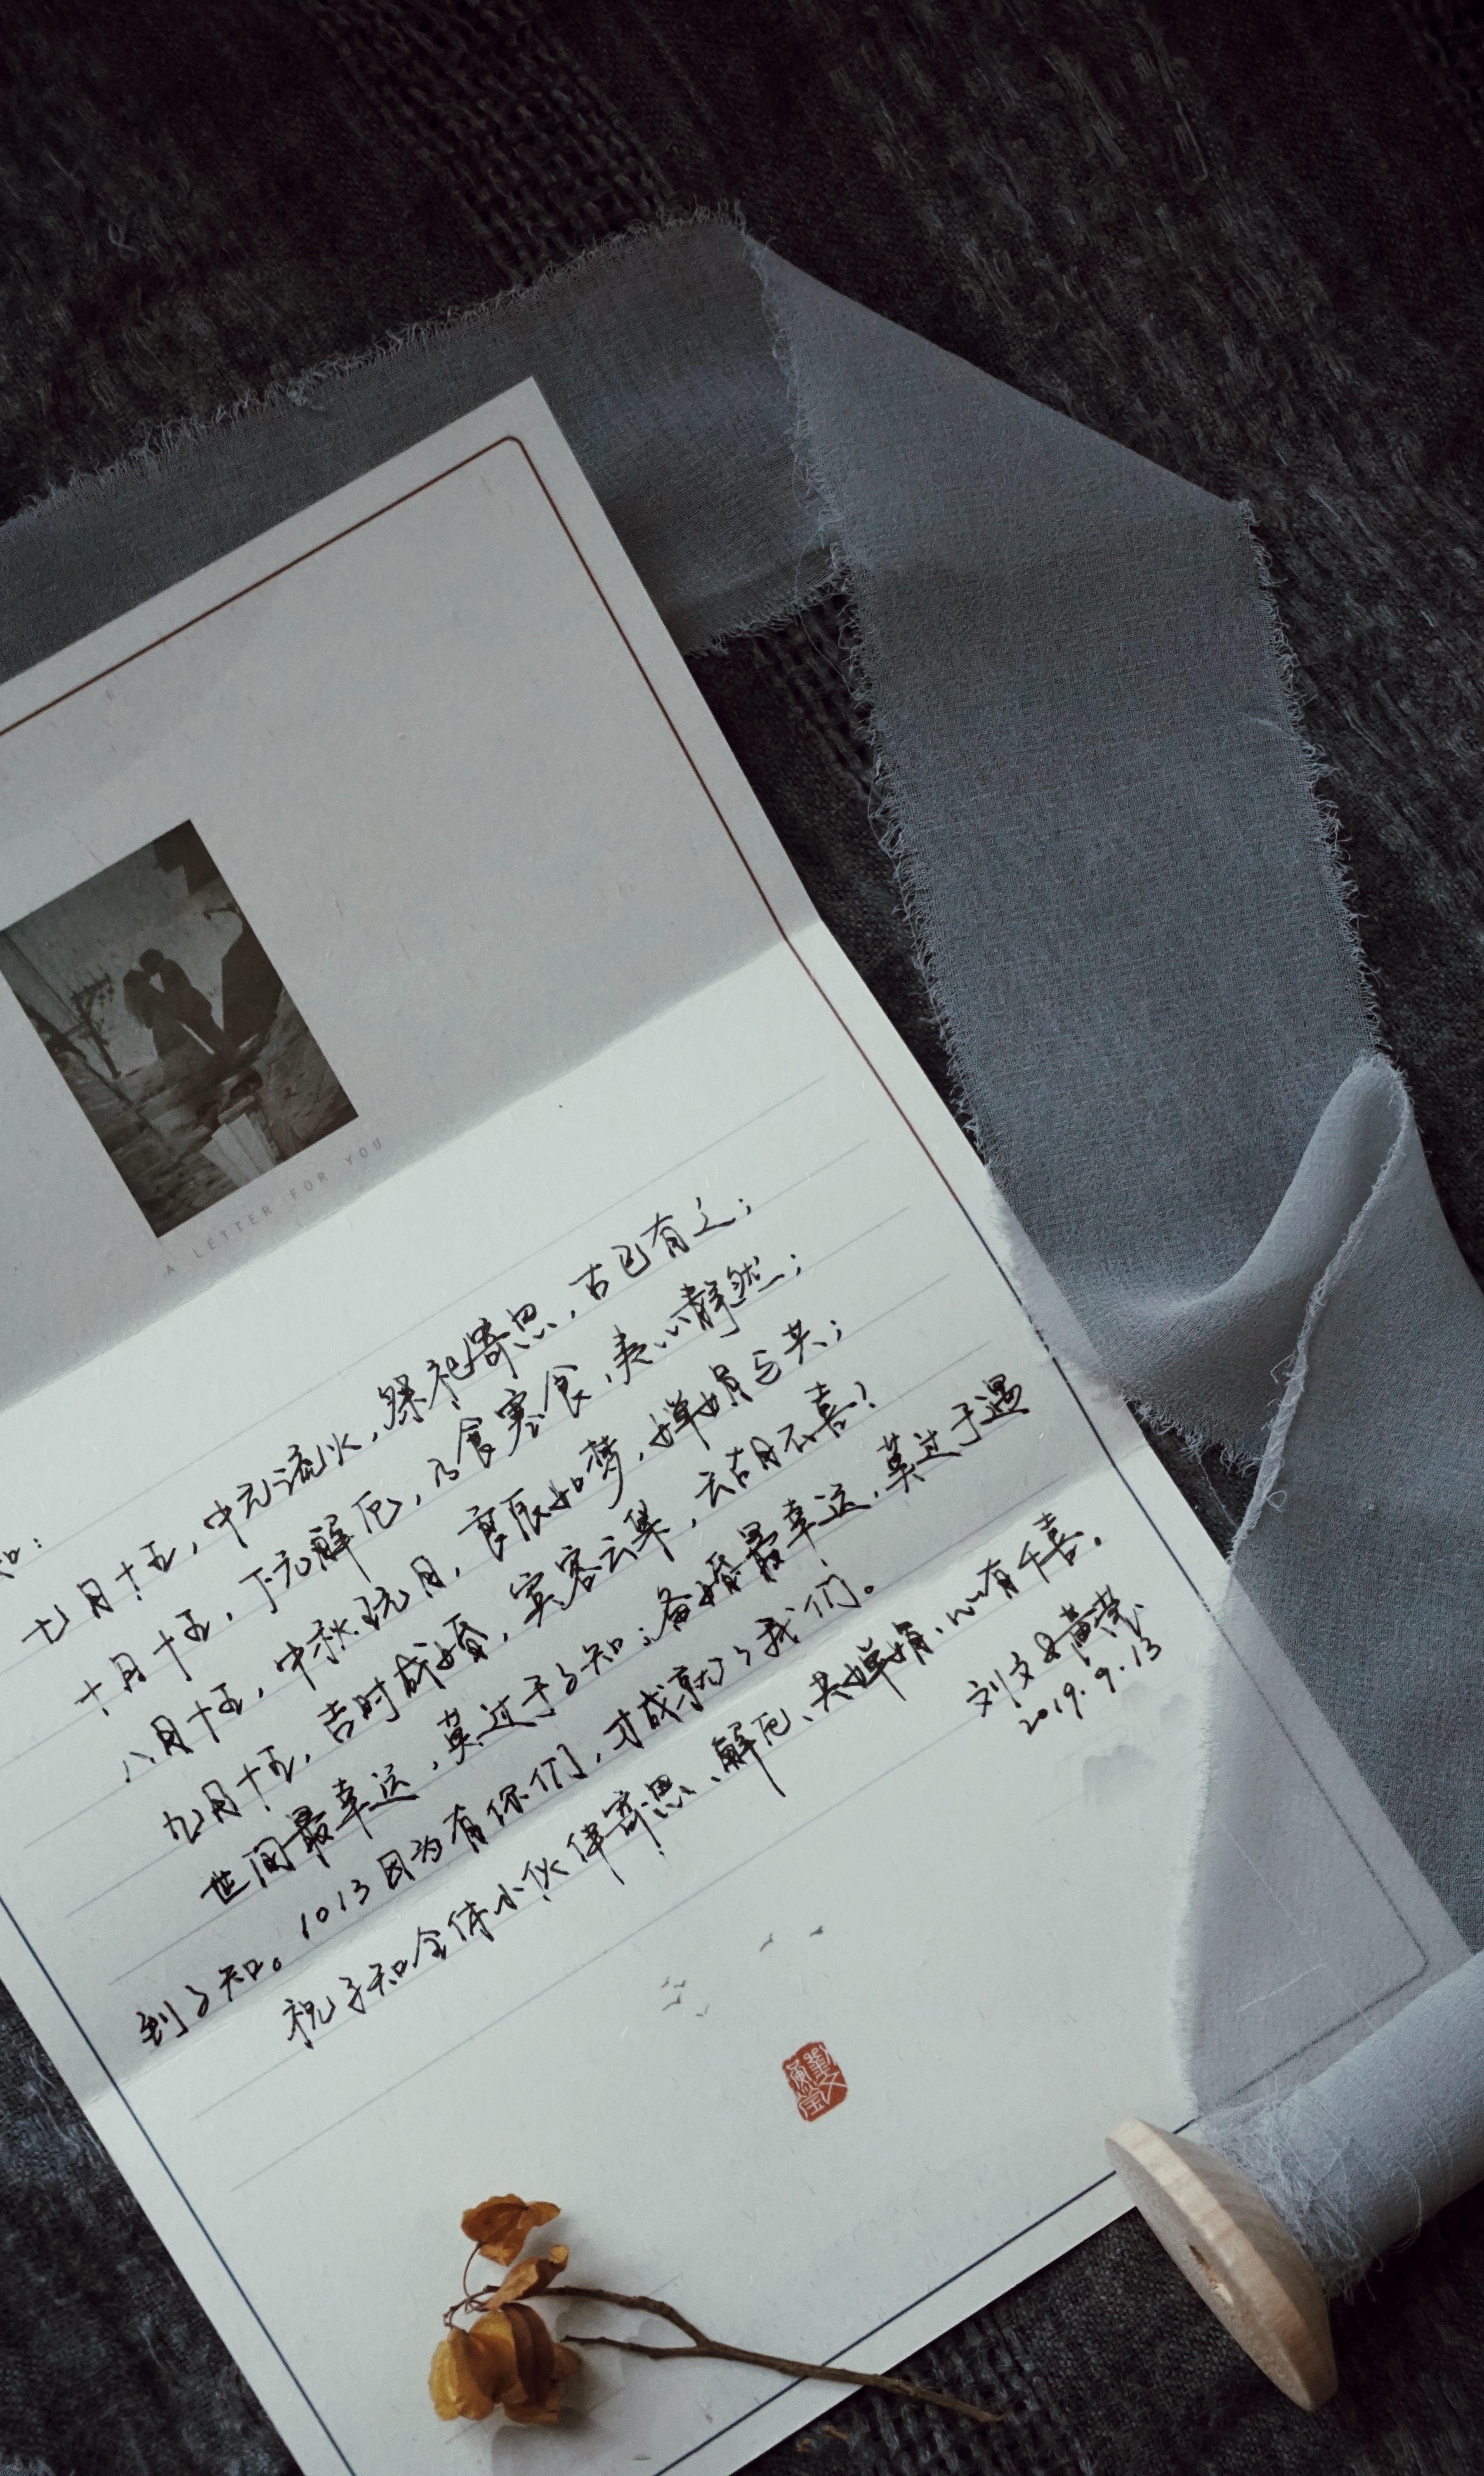 A LETTER FOR YOU
知：
七月十五，中元流火，祭祀寄思，古已有之；
十月十五，下元解厄，乃食寒食，表心静然；
八月十五，中秋玩月，良辰如梦，婵娟与共；
九月十五，吉时成婚，宾客云集，云胡不喜？
世间最幸运，莫过于了知；备婚最幸运，莫过于遇
到了知。1013因为有你们，才成就了我们。
祝了知全体小伙伴寄思、解厄、共婵娟、心有千喜。
刘文
2019.9.13